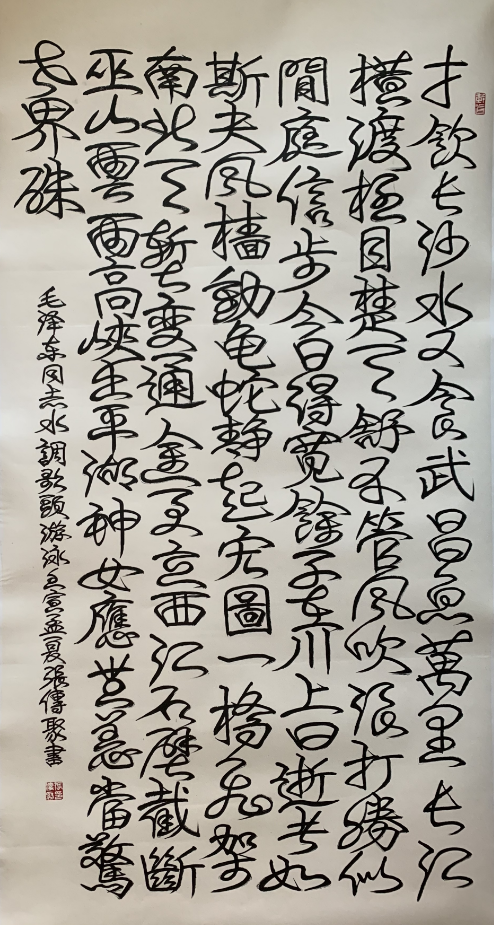 才飲长沙水又食武昌魚萬里长江
横渡極目楚天舒不管风吹浪打勝似
閒庭信步今日得寬餘子在川上曰逝者如
斯夫风樯動龟蛇静起宏圖一橋飞架
南北天塹變通途更立西江石壁截斷
巫山雲雨高峡出平湖神女應無恙當驚
世界殊
毛泽东同志水調歌頭游泳壬寅孟夏張傳聚書